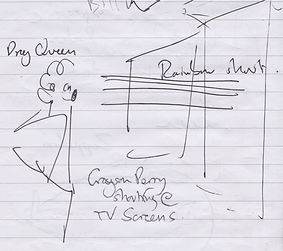 Bill
Drag Queen
Rainbow shoot.
Grayson Perry
shouting @
TV Screens.